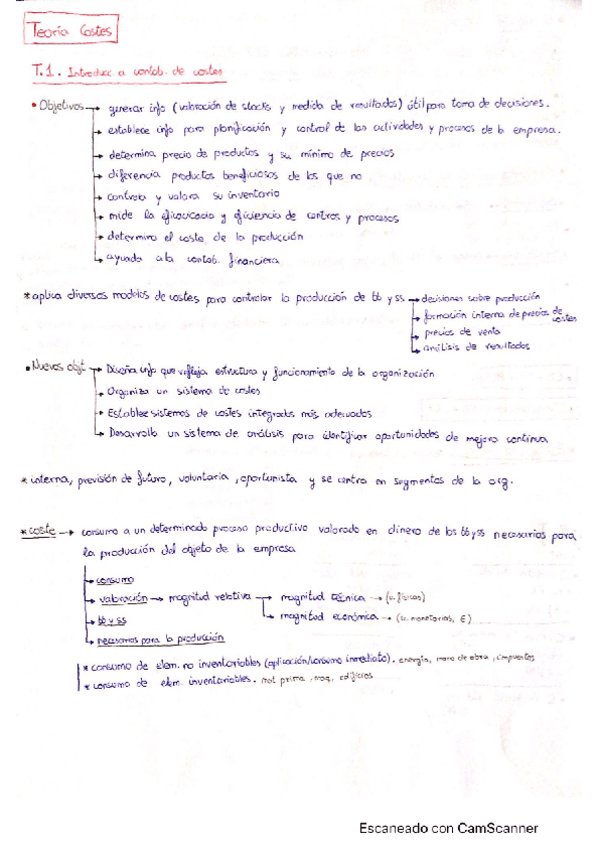 Teoría Costes
T.1. Introducc a contab. de costes
• Objetivos → generar info (valoración de stocks y medida de resultados) útil para toma de decisiones.
→ establece info para planificación y control de las actividades y procesos de la empresa.
→ determina precio de productos y su mínimo de precios
→ diferencia productos beneficiosos de los que no
→ controla y valora su inventario
→ mide la eficacia y eficiencia de centros y procesos
→ determina el coste de la producción
→ ayuda a la contab. financiera
* aplica diversos modelos de costes para controlar la producción de bb y ss → decisiones sobre producción
→ formación interna de precios de costes
→ precios de venta
→ análisis de resultados
• Nuevos objt → Diseña info que refleja estructura y funcionamiento de la organización
→ Organiza un sistema de costes
→ Establece sistemas de costes integrados más adecuados
→ Desarrolla un sistema de análisis para identificar oportunidades de mejora continua
* interna, previsión de futuro, voluntaria, oportunista y se centra en segmentos de la org.
* coste → consumo a un determinado proceso productivo valorado en dinero de los bb y ss necesarios para
la producción del objeto de la empresa
→ consumo
→ valoración → magnitud relativa → magnitud técnica → (u. físicas)
→ magnitud económica → (u. monetarias, €)
→ bb y ss
→ necesarios para la producción
* consumo de elem. no inventariables (aplicación/consumo inmediato). energía, mano de obra, impuestos
* consumo de elem. inventariables. mat prima, maq, edificios
Escaneado con CamScanner